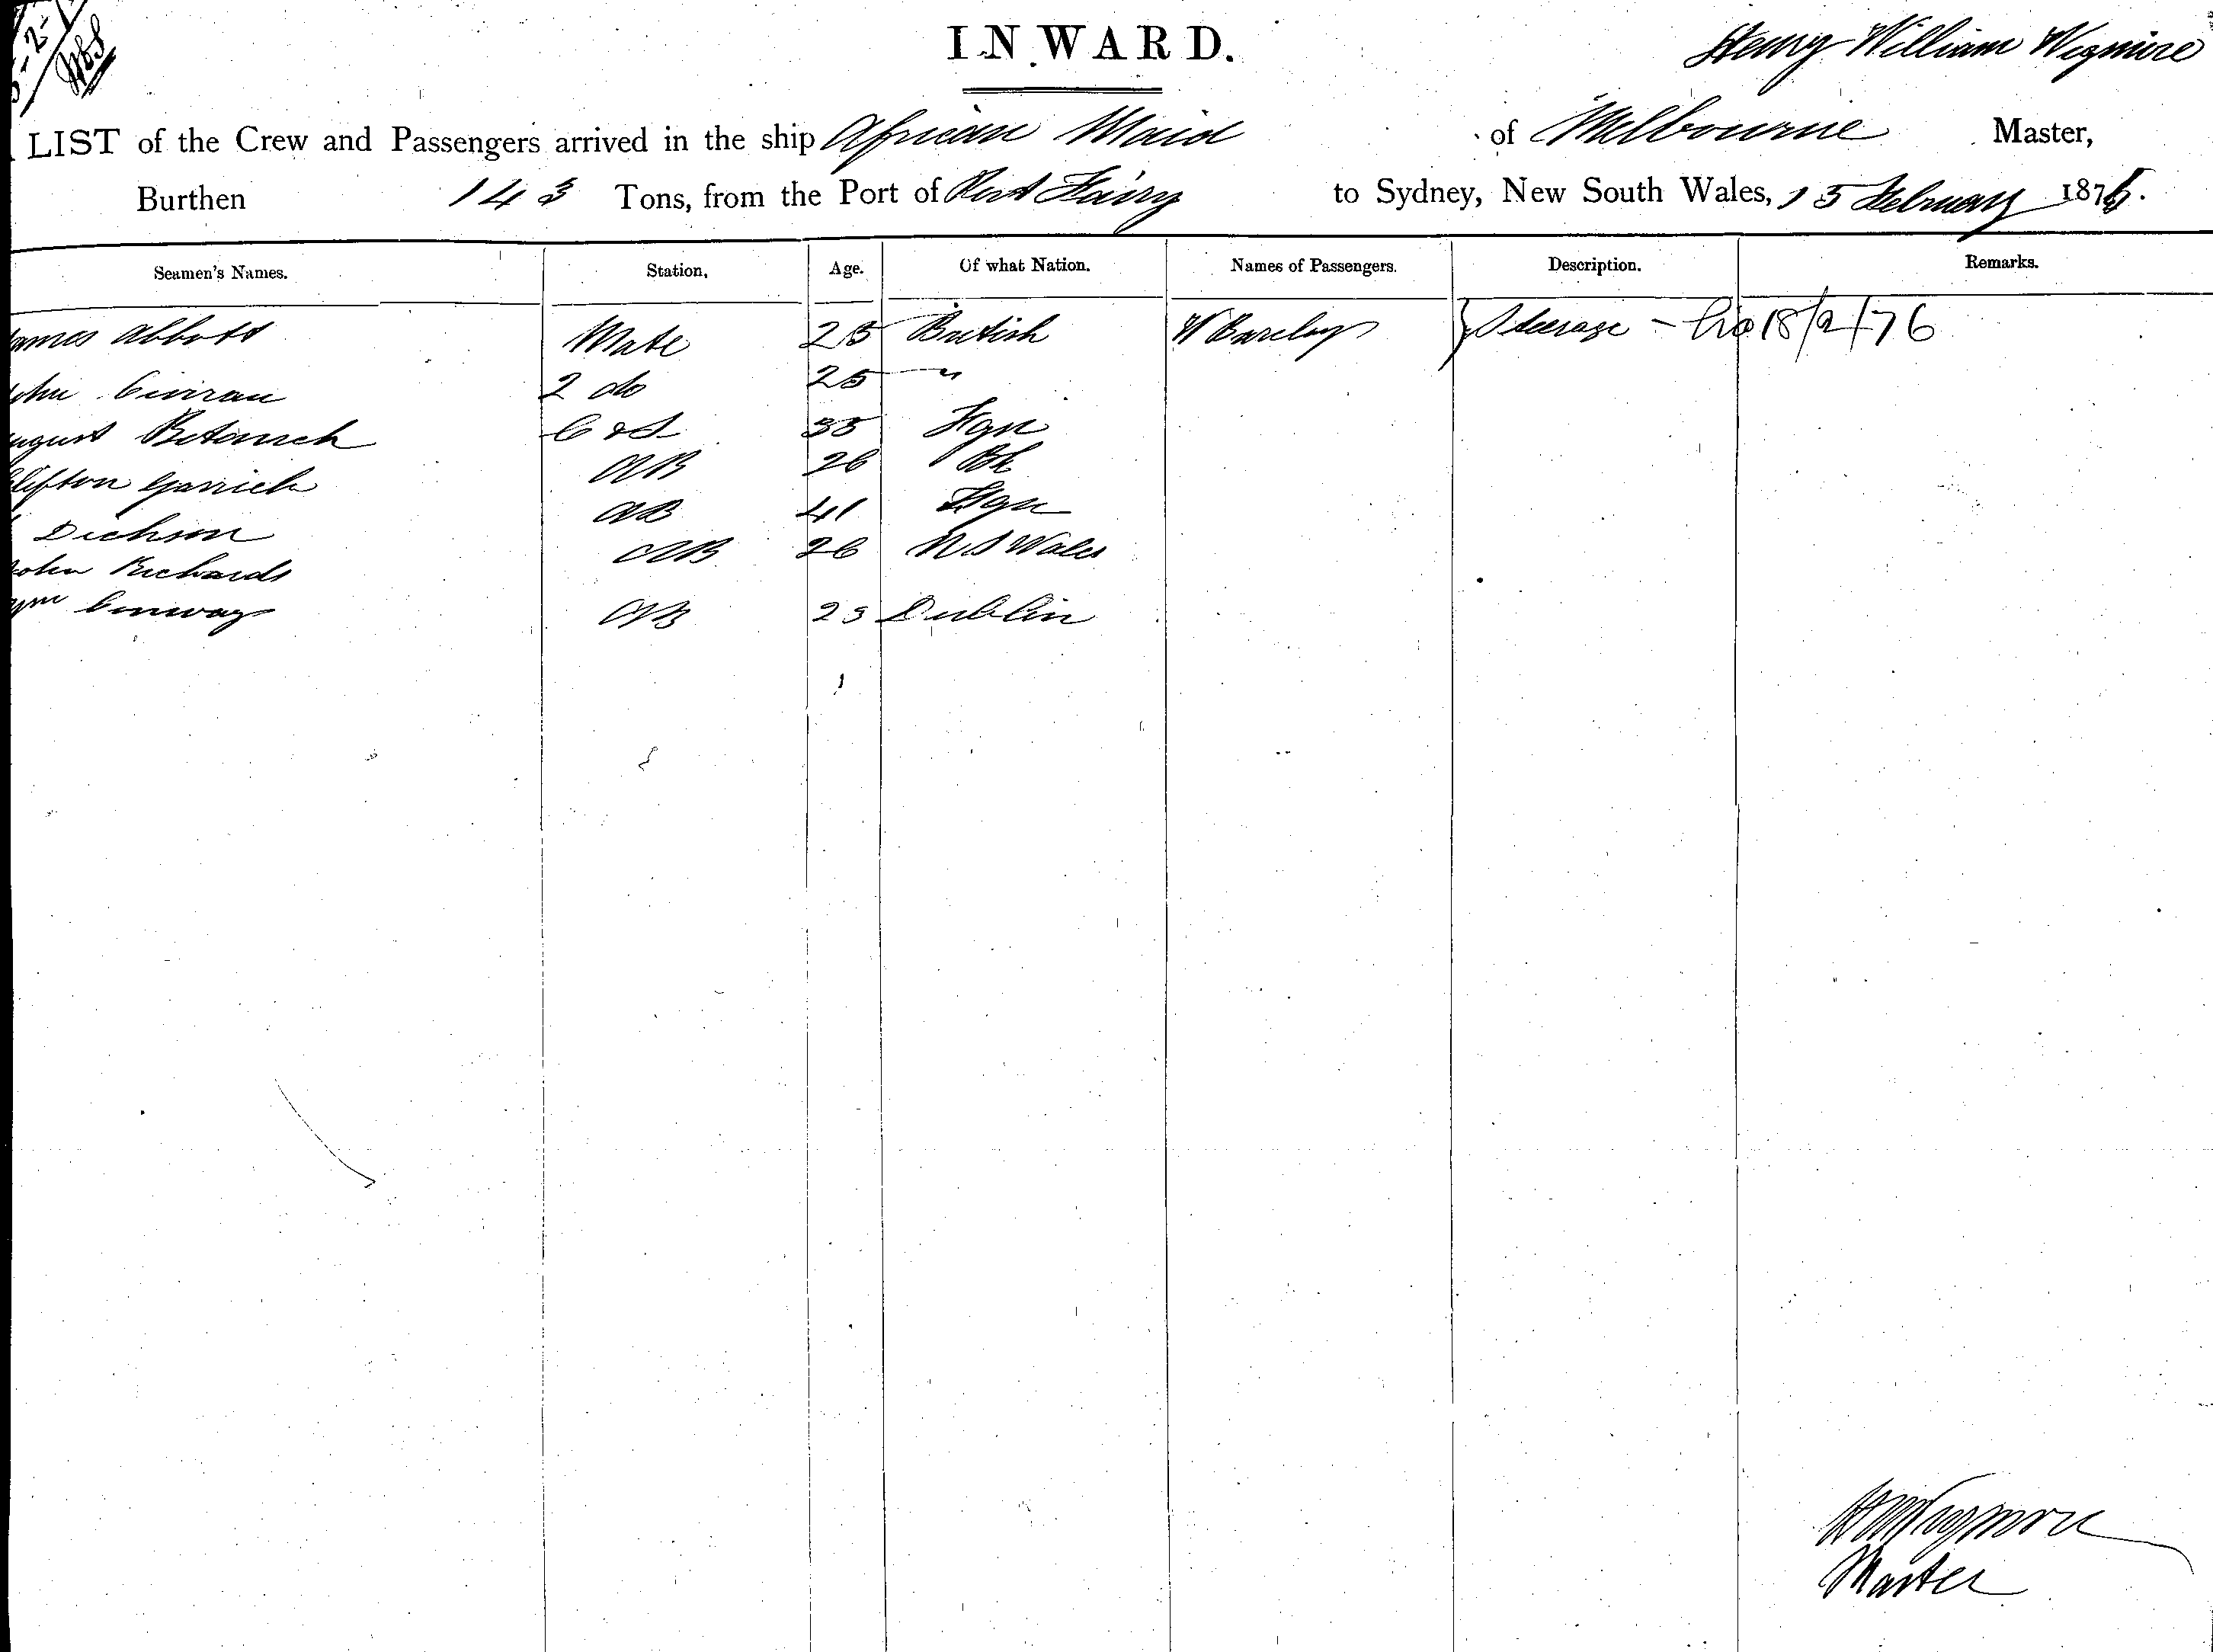 INWARD.
Henry William Wigmore
LIST of the Crew and Passengers arrived in the ship African Maid of Melbourne Master,
Burthen 143 Tons, from the Port of Port Fairy to Sydney, New South Wales, 15 February 1876.
Seamen's Names. Station. Age. Of what Nation. Names of Passengers. Description. Remarks.
ames Abbott Mate 25 British W Barclay Steerage - 18/2/76
ohn 2 do 25 "
ugust 33 Fgn
lifton Garrick AB 26 Bh
Dickson AB 41 Fgn
ohn Richards AB 26 N.S Wales
Wm Conway AB 23 Dublin
HWWigmore
Master